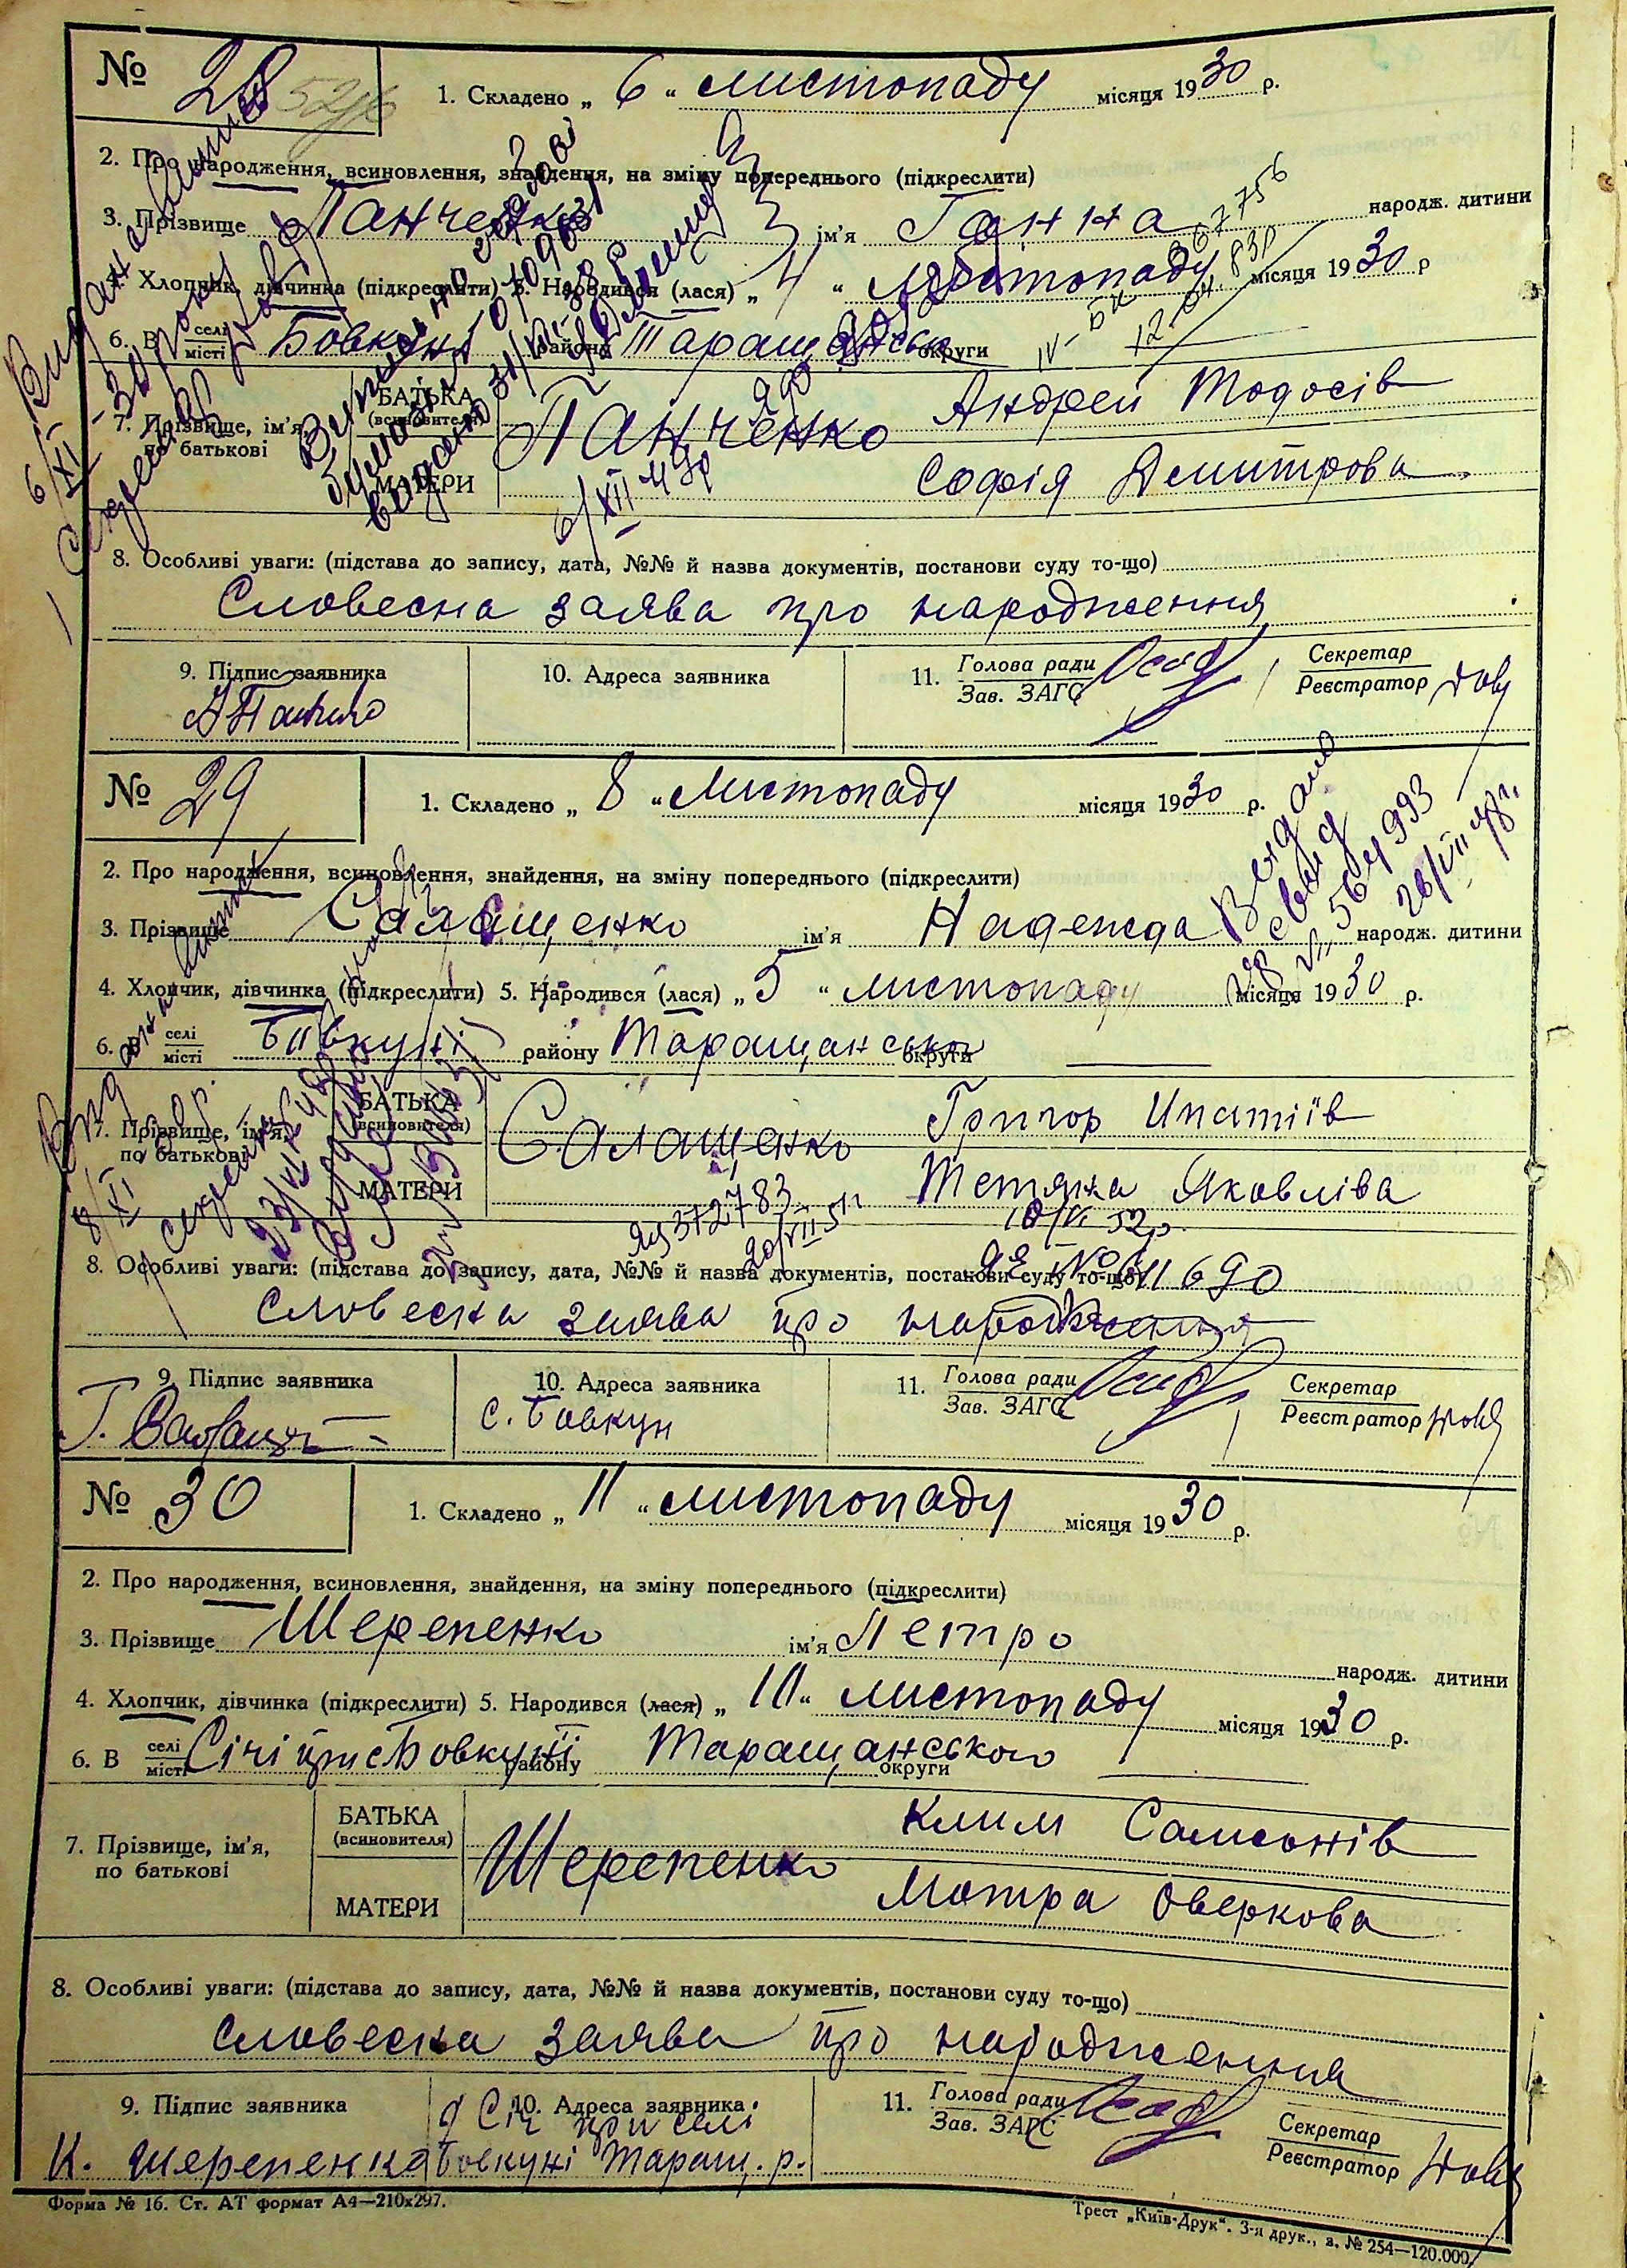 № 28
1. Складено „ 6 “ листопаду місяця 1930 р.
2. Про народження, всиновлення, знайдення, на зміну попереднього (підкреслити)
3. Прізвище Панченко ім'я Ганна народж. дитини
4. Хлопчик, дівчинка (підкреслити) 5. Народився (лася) „ 4 “ листопаду місяця 1930 р
6. В селі місті Бовкуні району Таращанськ округи
7. Прізвище, ім'я, по батькові
БАТЬКА (всиновителя) Панченко Андрей Тодосів
МАТЕРИ Софія Демитрова
6/XII 49р
8. Особливі уваги: (підстава до запису, дата, №№ й назва документів, постанови суду то-що)
Словесна заява про народження
9. Підпис заявника
10. Адреса заявника
11. Голова ради Зав. ЗАГС
Секретар Реєстратор
№ 29
1. Складено „ 8 “ листопаду місяця 1930 р.
2. Про народження, всиновлення, знайдення, на зміну попереднього (підкреслити)
3. Прізвище Салащенко ім'я Надежда народж. дитини
4. Хлопчик, дівчинка (підкреслити) 5. Народився (лася) „ 5 “ листопаду місяця 1930 р.
6. В селі місті Бовкуні району Таращансько округи
7. Прізвище, ім'я, по батькові
БАТЬКА (всиновителя) Салащенко Григор Ипатіїв
МАТЕРИ Тетяна Яковліва
372783
20/VII 51г
10/VI 52р.
8. Особливі уваги: (підстава до запису, дата, №№ й назва документів, постанови суду то-що)
Словесна заява про народження
9. Підпис заявника
10. Адреса заявника
с. Бовкун
11. Голова ради Зав. ЗАГС
Секретар Реєстратор
№ 30
1. Складено „ 11 “ листопаду місяця 1930 р.
2. Про народження, всиновлення, знайдення, на зміну попереднього (підкреслити)
3. Прізвище Шерепенко ім'я Петро народж. дитини
4. Хлопчик, дівчинка (підкреслити) 5. Народився (лася) „ 10 “ листопаду місяця 1930 р.
6. В селі місті Січі при с Бовкуні району Таращанського округи
7. Прізвище, ім'я, по батькові
БАТЬКА (всиновителя) Шерепенко Клим Самсонів
МАТЕРИ Мотра Оверкова
8. Особливі уваги: (підстава до запису, дата, №№ й назва документів, постанови суду то-що)
Словесна заява про народження
9. Підпис заявника
К. Шерепенко
10. Адреса заявника
Січ при селі
Бовкуні Таращ. р.
11. Голова ради Зав. ЗАГС
Секретар Реєстратор
Форма № 16. Ст. АТ формат А4—210x297.
Трест „Київ-Друк“. 3-я друк., з. № 254—120.000